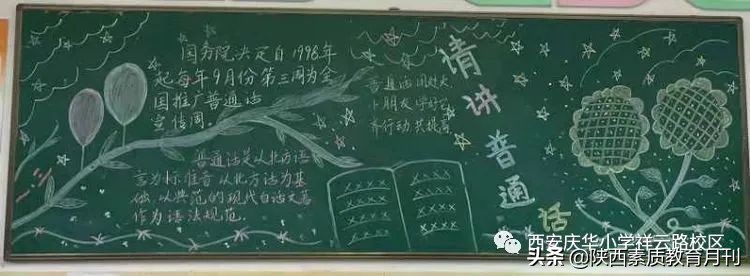 国务院决定自1998年
起每年9月份第三周为全
国推广普通话
宣传周.
普通话是以北方语
言为标准音以北方话为基
础,以典范的现代白话文著
作为语法规范.
普通话用处大
小朋友学好它
齐行动共提高
请讲普通话
一.三
西安庆华小学祥云路校区
头条@陕西素质教育月刊